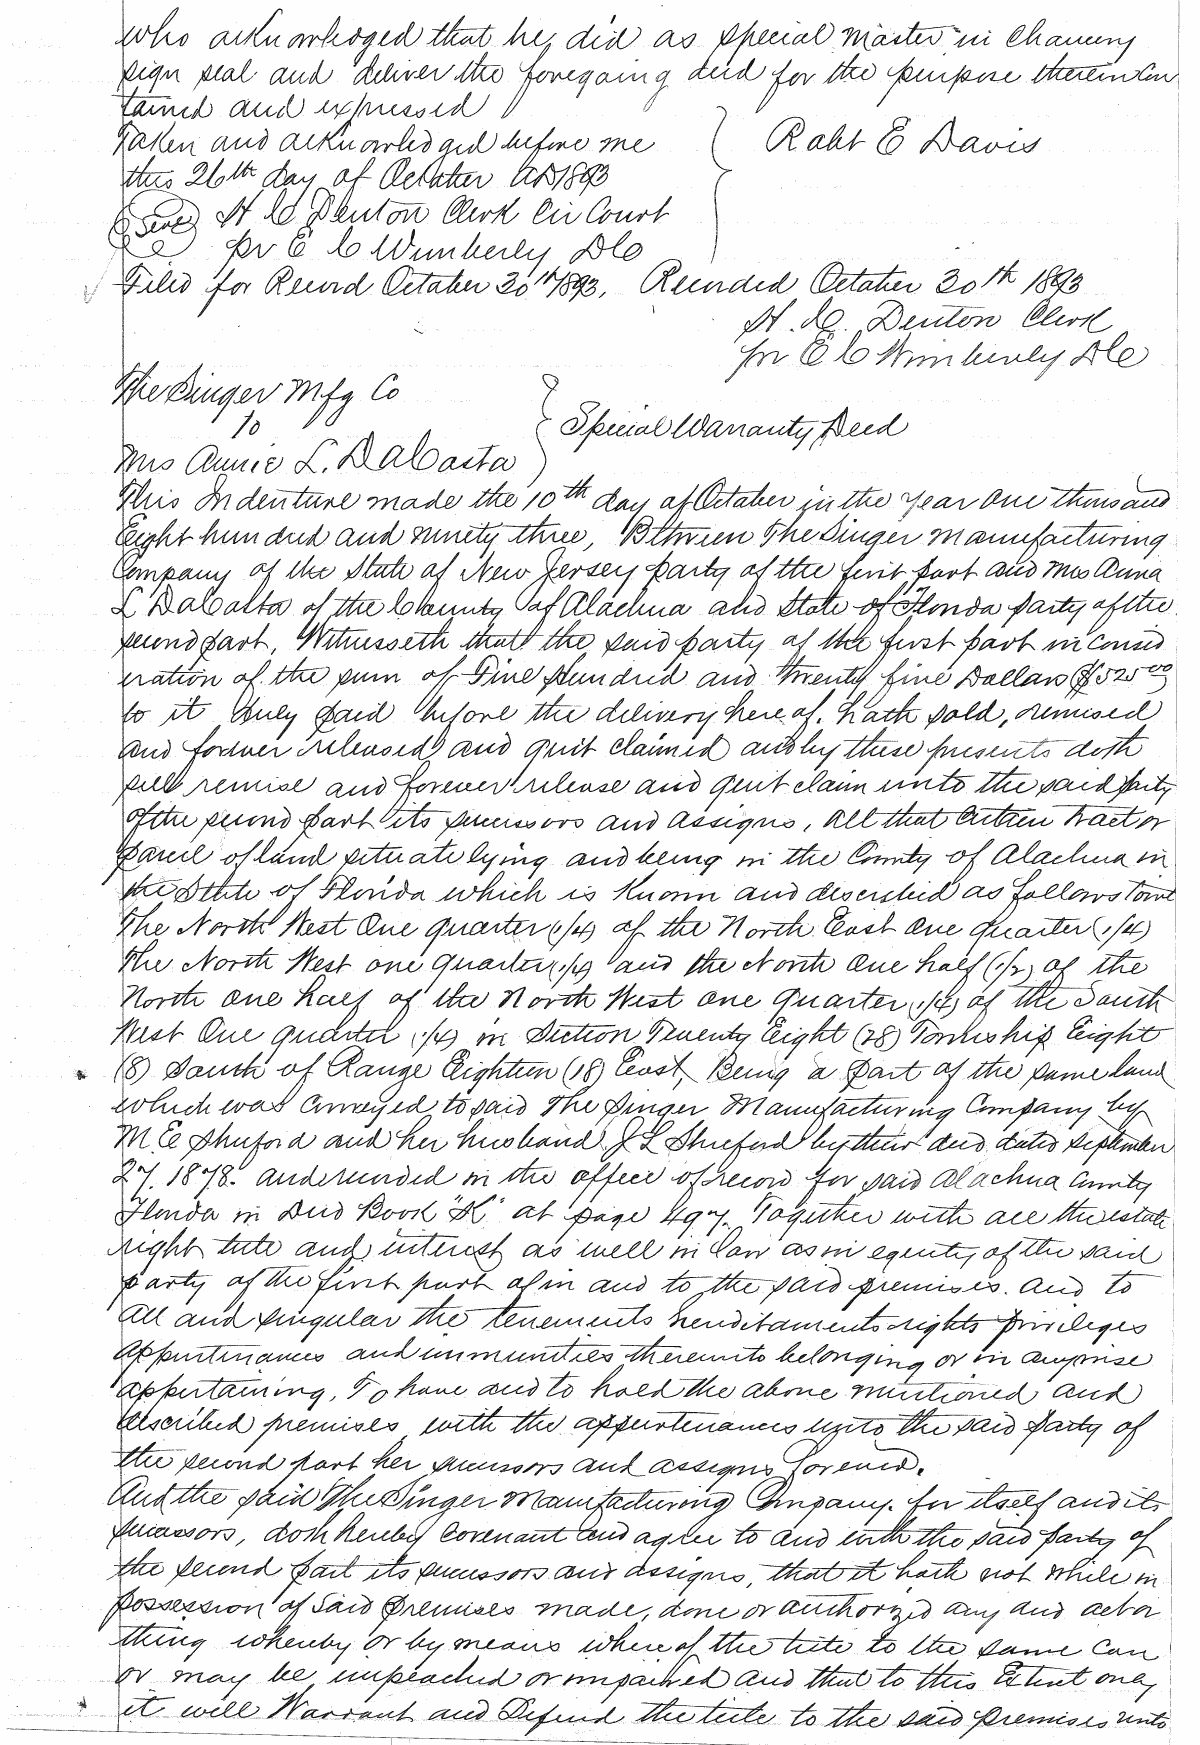 who acknowledged that he did as special master in Chancery
sign seal and deliver the foregoing deed for the purpose therein con
tained and expressed
Taken and acknowledged before me
this 26th day of October AD 1893
Robt E Davis
(Seal) H C Denton Clerk Cir Court
pr E C Wimberly DC
Filed for Record October 30th 1893. Recorded October 30th 1893
H. C. Denton Clerk
pr E C Wimberly DC
The Singer Mfg Co
to
Special Warranty Deed
Mrs Annie L. DaCosta
This Indenture made the 10th day of October in the year one thousand
Eight hundred and ninety three, Between The Singer Manufacturing
Company of the State of New Jersey party of the first part and Mrs Anna
L DaCosta of the County of Alachua and State of Florida party of the
second part, Witnesseth that the said party of the first part in consid
eration of the sum of Five Hundred and twenty five Dollars ($525.00)
to it duly paid before the delivery here of. hath sold, remised
and forever released and quit claimed and by these presents doth
sell remise and forever release and quit claim unto the said party
of the second part its successors and assigns, all that certain tract or
parcel of land situate lying and being in the County of Alachua in
the State of Florida which is known and described as follows towit
The North West One quarter (1/4) of the North East one quarter (1/4)
the North West one quarter (1/4) and the North One half (1/2) of the
North one half of the North West one quarter (1/4) of the South
West One quarter (1/4) in Section Twenty Eight (28) Township Eight
(8) South of Range Eighteen (18) East, Being a part of the same land
which was conveyed to said The Singer Manufacturing Company by
M. E Shuford and her husband J L Shuford by their deed dated September
27, 1878. and recorded in the office of record for said Alachua County
Florida in Deed Book "K" at page 497. Together with all the estate
right title and interest as well in law as in equity of the said
party of the first part of in and to the said premises. and to
all and singular the tenements hereditaments rights privileges
appurtinances and immunities thereunto belonging or in anywise
appertaining, To have and to hold the above mentioned and
described premises with the appurtenances unto the said party of
the second part her successors and assigns forever.
And the said The Singer Manufacturing Company. for itself and its
successors, doth hereby covenant and agree to and with the said party of
the second part its successors and assigns, that it hath not while in
possession of said premises made, done or authorized any and act or
thing whereby or by means where of the title to the same can
or may be impeached or impaired and that to this Extent only
it will Warrant and Defend the title to the said premises unto